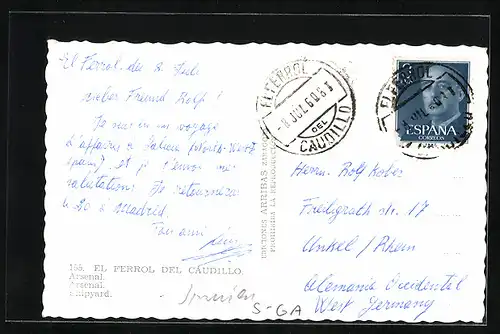 El Ferrol den 8. Juli
Lieber Freund Rolf!
Je suis en voyage
d'affaires a Galicia (Nord-West
spani) et je t'envoi mes
salutations. Je retournerai
le 20 à Madrid.
Ton ami
166. EL FERROL DEL CAUDILLO.
Arsenal.
Arsenal.
Shipyard.
EDICIONES ARRIBAS ZARAGOZA
PROHIBIDA LA REPRODUCCION
EL FERROL
-8 JUL 60
DEL
CAUDILLO
ESPAÑA
CORREOS
Herrn Rolf Kober
Freiligrath str. 17
Unkel / Rhein
Alemania Occidental
West Germany
Spanien
S-GA